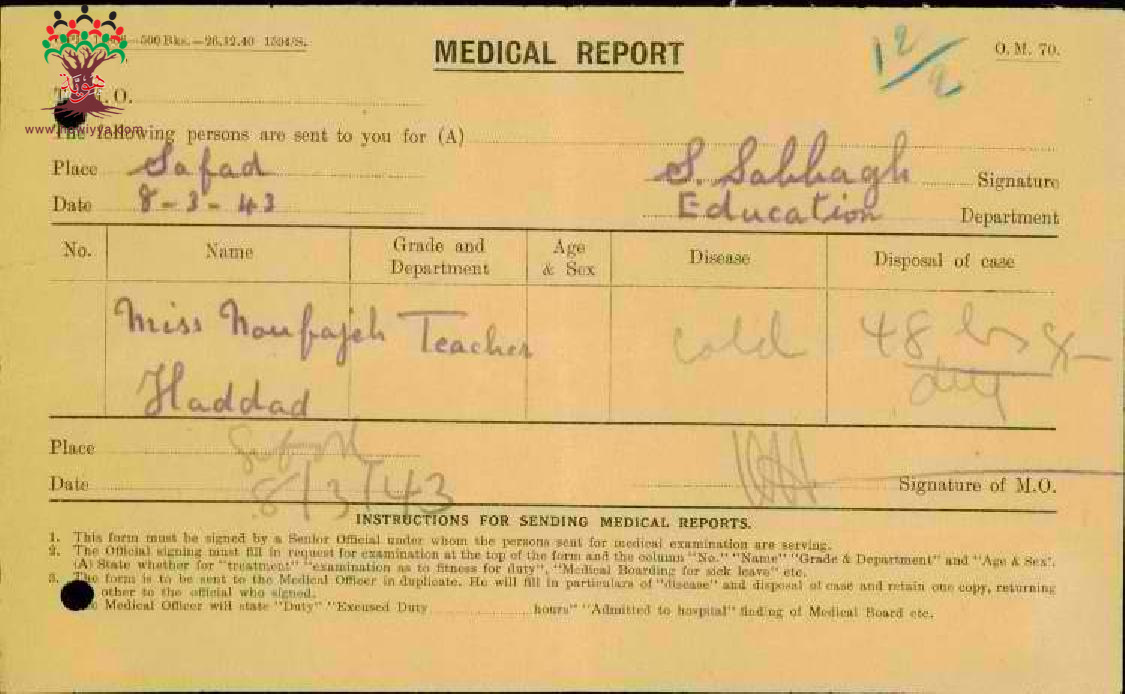 500 Bks.—26.12.40 1504/S.
MEDICAL REPORT
12/2
O. M. 70.
O.
www.hawiyya.com
The following persons are sent to you for (A)
Place Safad
S. Sabbagh Signature
Date 8-3-43
Education Department
No. Name Grade and Department Age & Sex Disease Disposal of case
Miss Noufajeh Teacher cold 48 hrs
Haddad duty
Place Safad
Date 8/3/43
Signature of M.O.
INSTRUCTIONS FOR SENDING MEDICAL REPORTS.
1. This form must be signed by a Senior Official under whom the persons sent for medical examination are serving.
2. The Official signing must fill in request for examination at the top of the form and the column "No." "Name" "Grade & Department" and "Age & Sex".
(A) State whether for "treatment" "examination as to fitness for duty", "Medical Boarding for sick leave" etc.
3. The form is to be sent to the Medical Officer in duplicate. He will fill in particulars of "disease" and disposal of case and retain one copy, returning
other to the official who signed.
Medical Officer will state "Duty" "Excused Duty hours" "Admitted to hospital" finding of Medical Board etc.